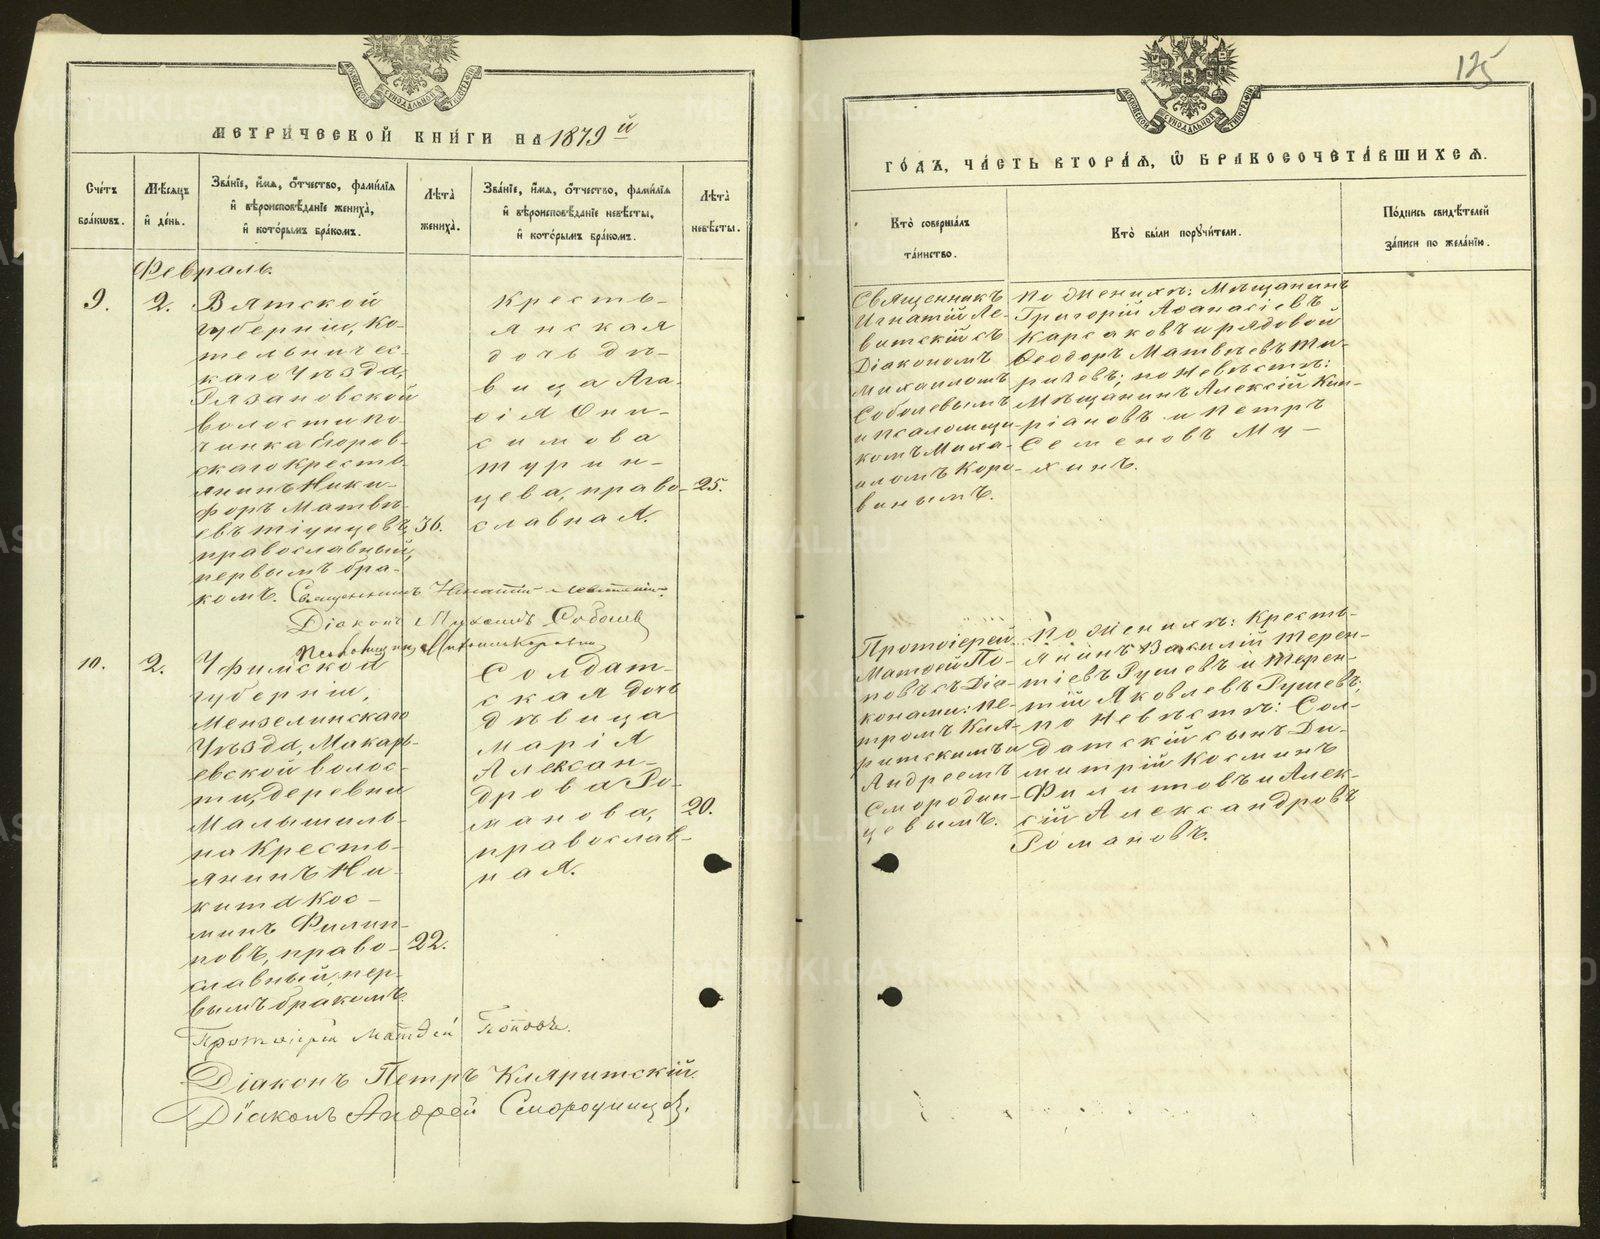 МЕТРИЧЕСКОЙ КНИГИ НА 1879й
Счетъ браковъ.
Мѣсяцъ и день.
Званіе, имя, отчество, фамилія и вѣроисповѣданіе жениха, и которымъ бракомъ.
Лѣта жениха.
Званіе, имя, отчество, фамилія и вѣроисповѣданіе невѣсты, и которымъ бракомъ.
Лѣта невѣсты.
Февраль.
9.
2.
Вятской
губерніи, Ко-
тельничес-
каго Уѣзда,
волости по-
чинка Егоров-
скаго кресть-
янинъ Ники-
форъ Матвѣ-
евъ
православный,
первымъ бра-
комъ.
36.
Кресть-
янская
дочь дѣ-
вица Ага-
ѳія Они-
симова
Турин-
цева, право-
славная.
25.
Священникъ Игнатій Левитскій.
Діаконъ Михаилъ Соболевъ
10.
2.
Уфимской
губерніи,
Мензелинскаго
Уѣзда, Макарь-
евской волос-
ти, деревни
на кресть-
янинъ Ни-
кита Кос-
минъ Филип-
повъ, право-
славный, пер-
вымъ бракомъ.
22.
Солдат-
ская дочь
дѣвица
Марія
Алексан-
дрова Ро-
манова,
православ-
ная.
20.
Протоіерей Матѳей Поповъ.
Діаконъ Петръ Кляритскій.
Діаконъ Андрей Смородинцевъ.
125
ГОДЪ, ЧАСТЬ ВТОРАЯ, Ѡ БРАКОСОЧЕТАВШИХСЯ.
Кто совершалъ таинство.
Кто были поручители.
Подпись свидѣтелей записи по желанію.
Священникъ
Игнатій Ле-
витскій съ
Діакономъ
Михаиломъ
Соболевымъ
и псаломщи-
комъ Миха-
иломъ Коро-
винымъ.
По женихѣ: Мѣщанинъ
Григорій Аѳанасіевъ
Карсаковъ и рядовой
Ѳеодоръ Матвѣевъ
по Невѣстѣ:
Мѣщанинъ Алексій Кип-
ріановъ и Петръ
Семеновъ Му-
хинъ.
Протоіерей
Матѳей По-
повъ съ Діа-
конами: Пе-
тромъ Кля-
ритскимъ и
Андреемъ
Смородин-
цевымъ.
По женихѣ: Кресть-
янинъ Василій Терен-
тіевъ Рушевъ и Терен-
тій Яковлевъ Рушевъ;
по Невѣстѣ: Сол-
датскій сынъ Ди-
митрій Косминъ
Филипповъ и Алек-
сій Александровъ
Романовъ.